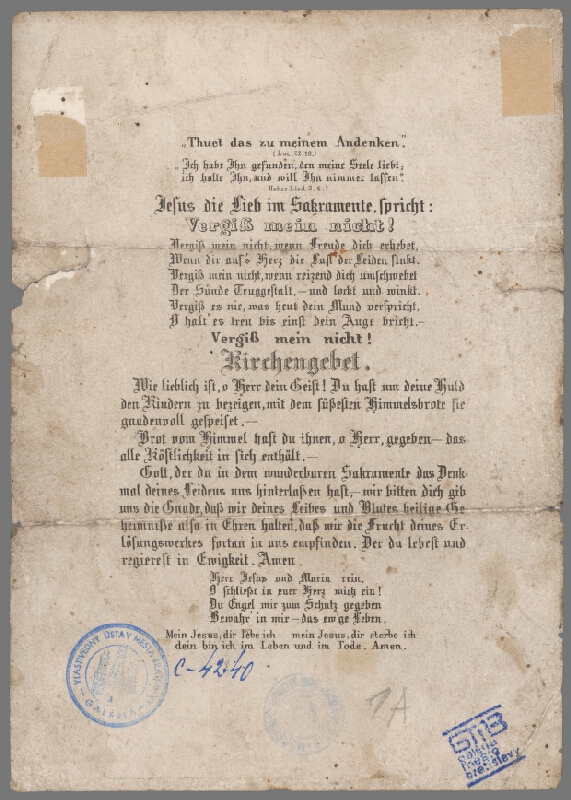 „Thuet das zu meinem Andenken".
(Luc. 22. 19.)
„Ich habe Ihn gefunden, den meine Seele liebt;
ich halte Ihn, und will Ihn nimmer lassen".
Hohes Lied 3. 4.
Jesus die Lieb im Sakramente, spricht:
Vergiß mein nicht!
Vergiß mein nicht, wenn Freude dich erhebet,
Wenn dir auf's Herz die Last der Leiden sinkt.
Vergiß mein nicht, wenn reizend dich umschwebet
Der Sünde Truggestalt, – und lockt und winkt.
Vergiß es nie, was heut dein Mund verspricht,
O halt es treu bis einst dein Auge bricht. –
Vergiß mein nicht!
Kirchengebet.
Wie lieblich ist, o Herr dein Geist! Du hast um deine Huld
den Kindern zu bezeigen, mit dem süßesten Himmelsbrote sie
gnadenvoll gespeiset. –
Brot vom Himmel hast du ihnen, o Herr, gegeben – das
alle Köstlichkeit in sich enthält. –
Gott, der du in dem wunderbaren Sakramente das Denk
mal deines Leidens uns hinterlaßen hast, – wir bitten dich gib
uns die Gnade, daß wir deines Leibes und Blutes heilige Ge
heimniße also in Ehren halten, daß wir die Frucht deines Er-
lösungswerkes fortan in uns empfinden. Der du lebest und
regierest in Ewigkeit. Amen.
Herr Jesus und Maria rein,
O schließt in euer Herz mich ein!
Du Engel mir zum Schutz gegeben
Bewahr in mir – das ew'ge Leben.
Mein Jesus, dir lebe ich mein Jesus, dir sterbe ich
dein bin ich im Leben und im Tode. Amen.
VLASTIVEDNÝ ÚSTAV MESTA
GALÉRIA
C-4240
1A
GMB
Galéria
mesta
Bratislavy